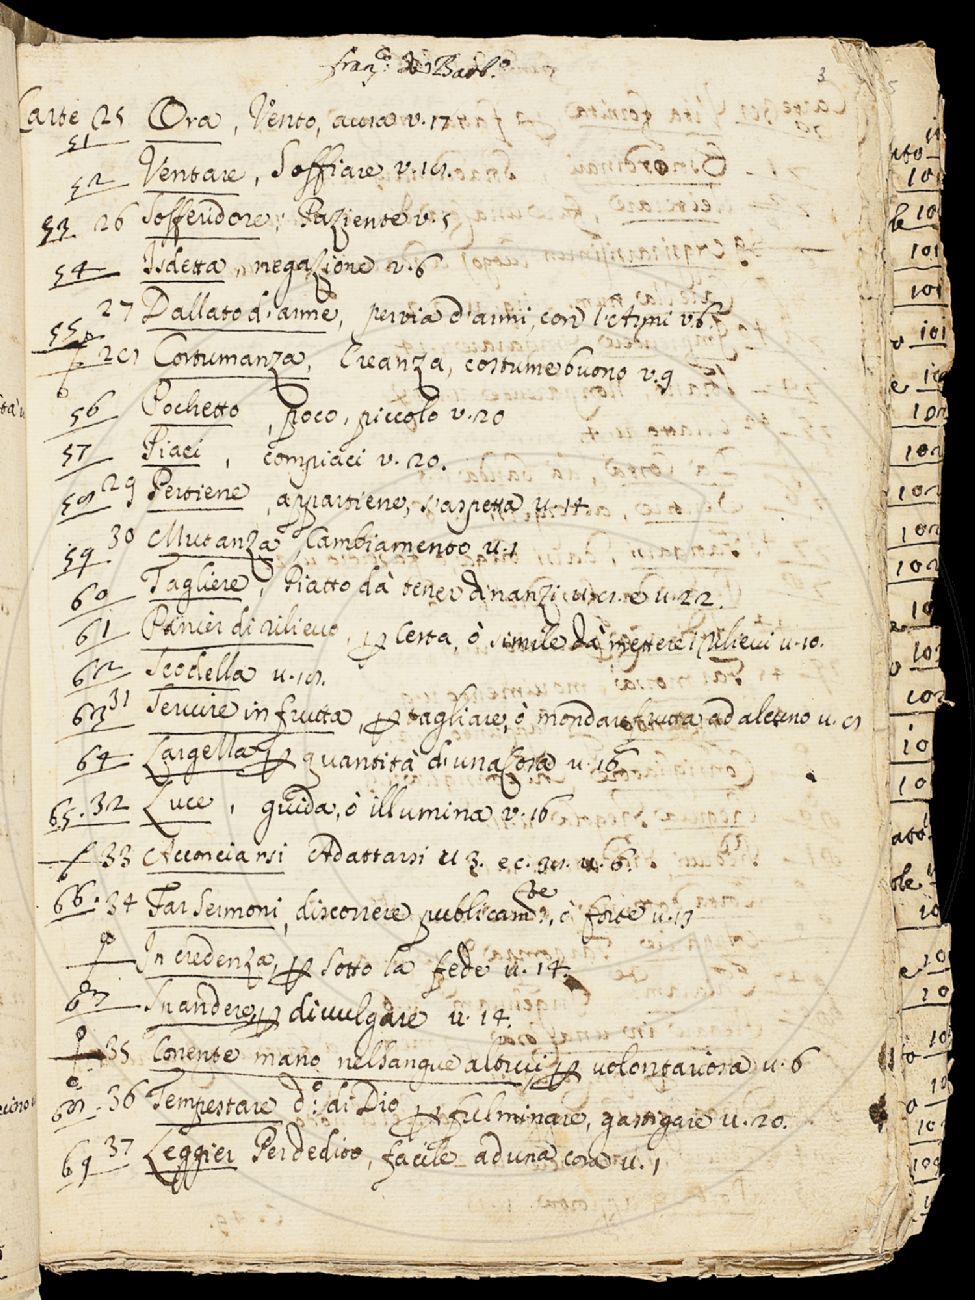 franc.º Barb.º
3
Carte 25 Ora, Vento, aura v. 17
51
52 Ventare, Soffiare v. 18.
53 26 Sofferidore, Paziente v. 5
54 Isdetta, negazione v. 6
27 Dallato d'arme, per via d'armi, con l'
55
28 Costumanza, Creanza, costume buono v. 9
56 Pochetto, poco, piccolo v. 20
57 Piaci, compiaci v. 20.
58 29 Pertiene, appartiene, s'aspetta u. 14.
59 30 Mutanza, Cambiamento u. 1
60 Tagliere, Piatto da tener dinanzi u. 22.
61 Panier di rilievo, p Cesta, ò simile da mettere i rilievi u. 10.
62 Scodella u. 18.
63 31 Servire in frutta, p tagliare, ò mondar frutta ad alcuno u. 8
64 Largella p quantità d'una cosa u. 16
65. 32 Luce, guida, ò illumina v. 16
33 Acconciarsi Adattarsi u 3. e c. 38. u. 6.
66. 34 Far sermoni, discorrere publicam.te, ò forte u. 17
In credenza, p sotto la fede u. 14.
67 Spandere, p divulgare u. 14.
35 Conente mano nel sangue altrui, p volontariosa u. 6
68 36 Tempestare d.º di Dio p fulminare, gastigare u. 20.
69 37 Leggier Perdedito, facile ad una cosa u. 1